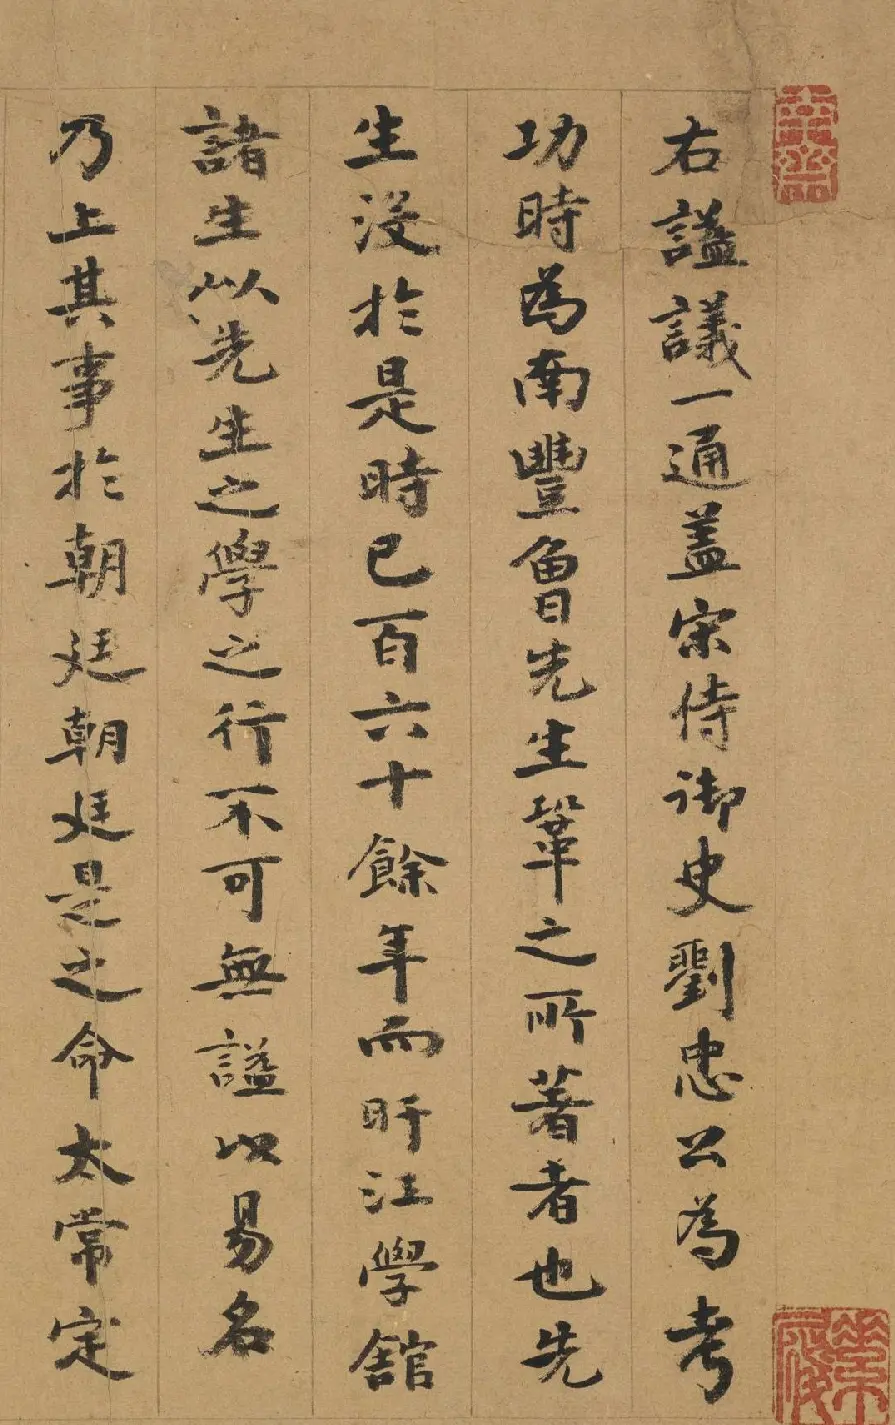 右謚議一通蓋宋侍御史劉忠公為考
功時為南豐曾先生鞏之所著者也先
生沒於是時已百六十餘年而旴江學舘
諸生以先生之學之行不可無謚以易名
乃上其事於朝廷朝廷是之命太常定